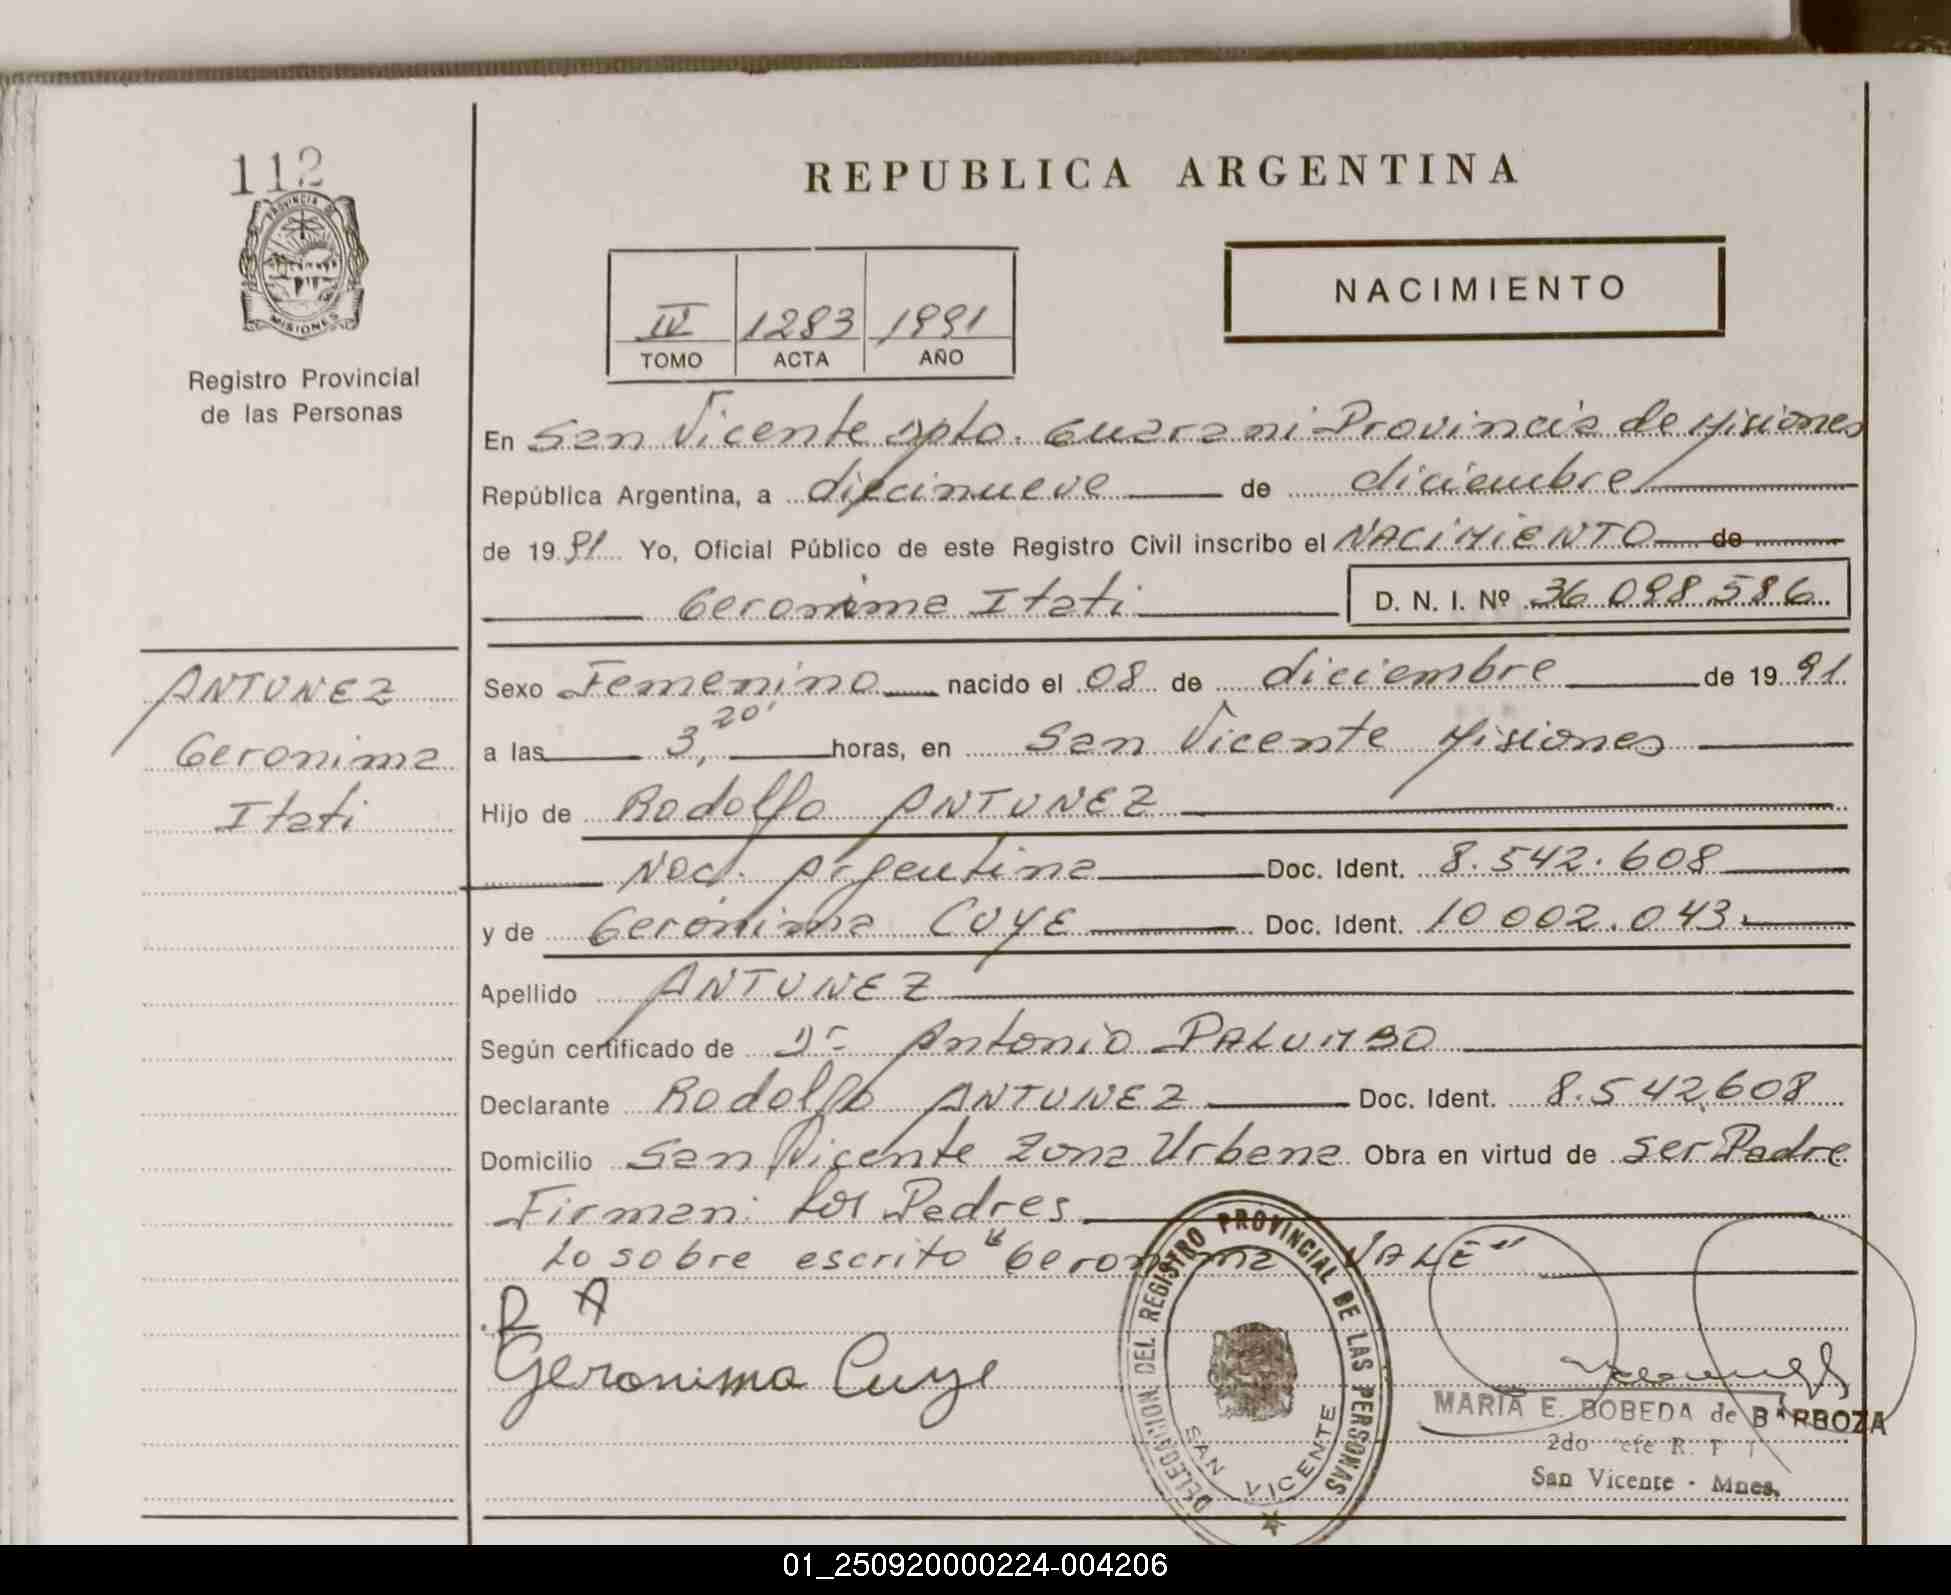 112
PROVINCIA DE
MISIONES
Registro Provincial
de las Personas
REPUBLICA ARGENTINA
NACIMIENTO
IV 1283 1991
TOMO ACTA AÑO
En San Vicente Dpto. Guarani Provincia de Misiones
República Argentina, a diecinueve de diciembre
de 1991 Yo, Oficial Público de este Registro Civil inscribo el NACIMIENTO de
Geronima Itati D. N. I. Nº 36 098 586
ANTUNEZ
Geronima
Itati
Sexo Femenino nacido el 08 de diciembre de 1991
a las 3,20' horas, en San Vicente Misiones
Hijo de Rodolfo ANTUNEZ
Nac. Argentina Doc. Ident. 8.542.608
y de Gerónima CUYE Doc. Ident. 10 002.043
Apellido ANTUNEZ
Según certificado de Dr Antonio PALUMBO
Declarante Rodolfo ANTUNEZ Doc. Ident. 8.542.608
Domicilio San Vicente Zona Urbana Obra en virtud de ser Padre
Firman: Los Padres
Lo sobre escrito "Geronima VALE"
R A
Geronima Cuye
DELEGACION DEL REGISTRO PROVINCIAL DE LAS PERSONAS
SAN VICENTE
MARIA E. BOBEDA de BARBOZA
2do Jefe R. P.
San Vicente - Mnes.
01_250920000224-004206